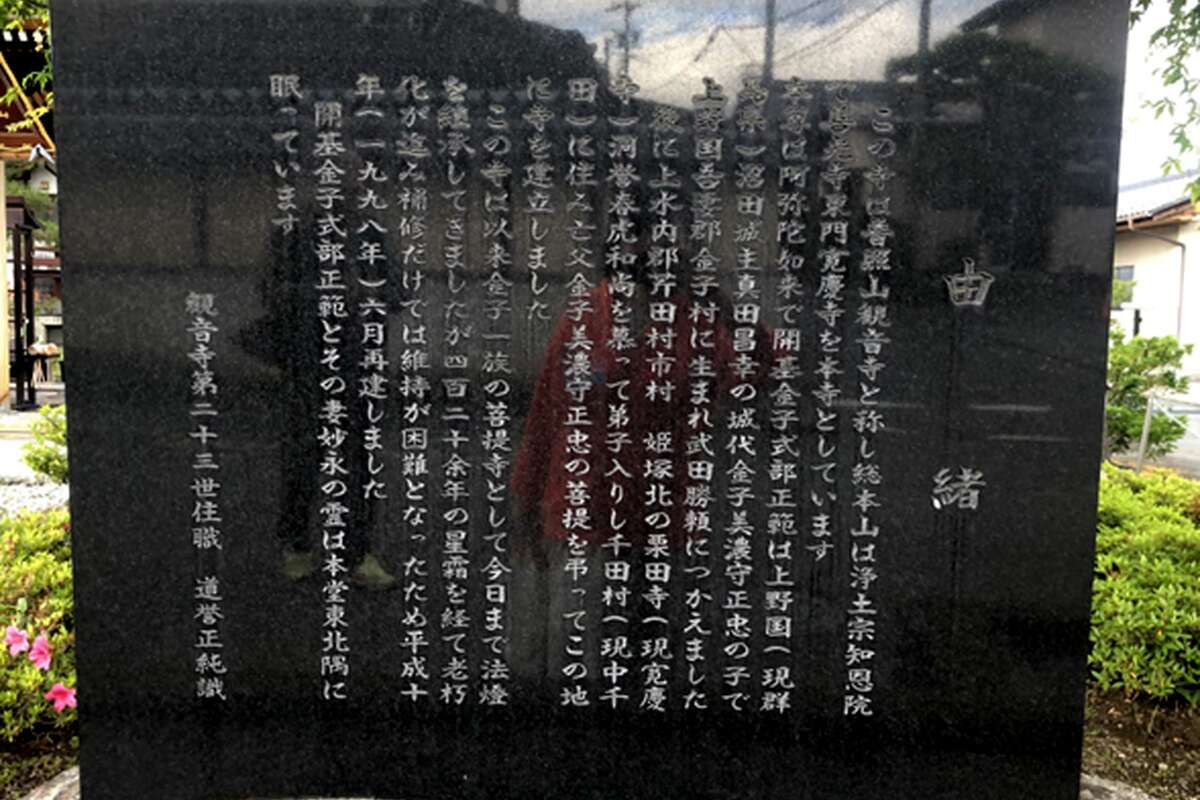 由緒
この寺は普照山観音寺と称し総本山は浄土宗知恩院
で善光寺東門寛慶寺を本寺としています
本尊は阿弥陀如来で開基金子式部正範は上野国(現群
馬県)沼田城主真田昌幸の城代金子美濃守正忠の子で
上野国吾妻郡金子村に生まれ武田勝頼につかえました
後に上水内郡芹田村市村 姫塚北の栗田寺(現寛慶
寺)洞誉春虎和尚を慕って弟子入りし千田村(現中千
田)に住み亡父金子美濃守正忠の菩提を弔ってこの地
に寺を建立しました
この寺は以来金子一族の菩提寺として今日まで法燈
を継承してきましたが四百二十余年の星霜を経て老朽
化が進み補修だけでは維持が困難となったため平成十
年(一九九八年)六月再建しました
開基金子式部正範とその妻妙永の霊は本堂東北隅に
眠っています
観音寺第二十三世住職 道誉正純識